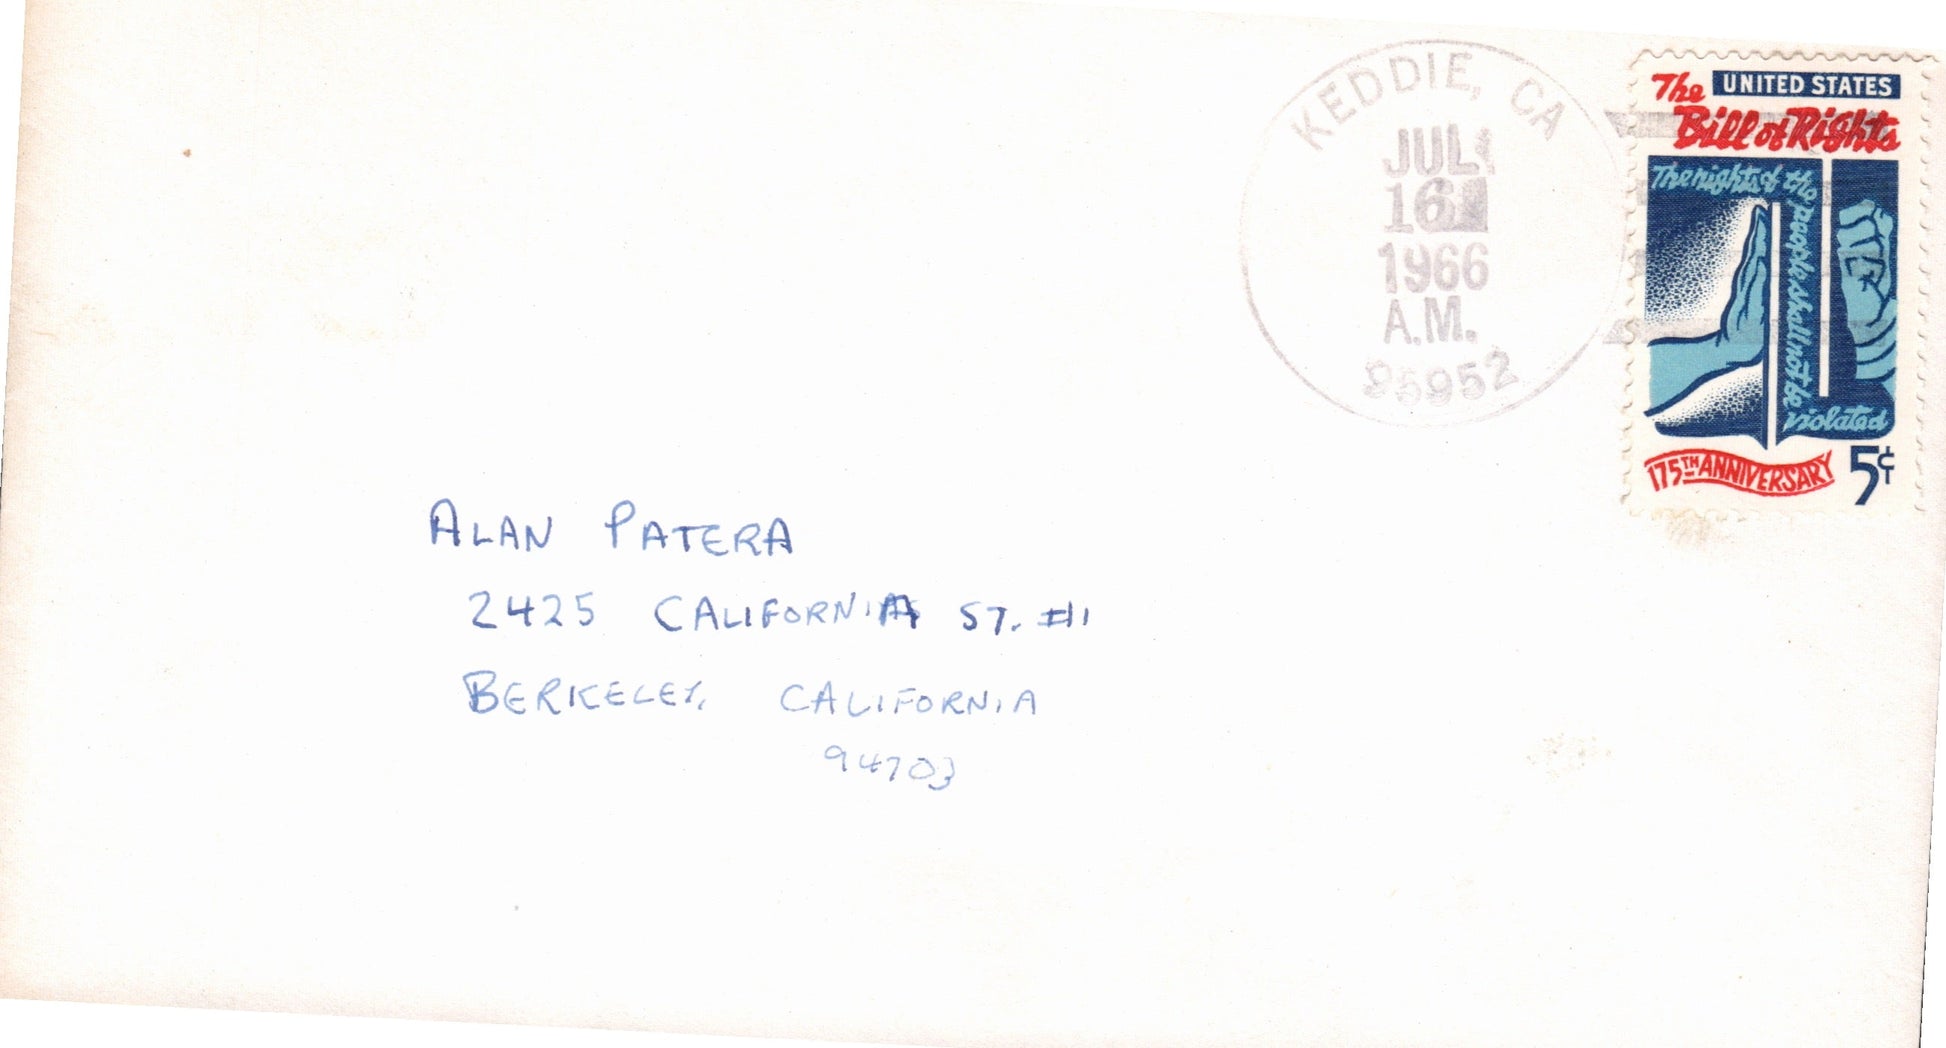 KEDDIE, CA
JUL
16
1966
A.M.
95952
UNITED STATES
The
Bill of Rights
The rights of the people shall not be violated
175TH ANNIVERSARY
5¢
ALAN PATERA
2425 CALIFORNIA ST. #1
BERKELEY, CALIFORNIA
94703